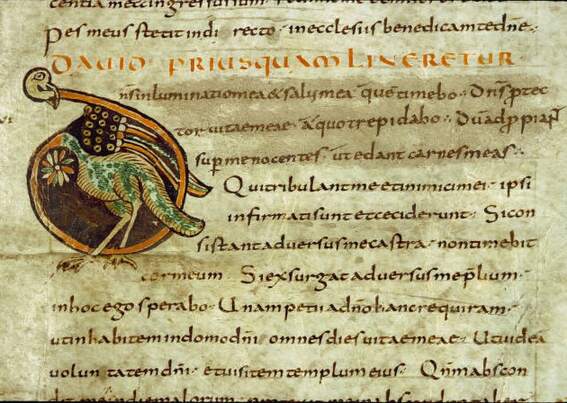 centia mea ingressus sum
Pes meus stetit indi recto · in ecclesiis benedicam te dne ·
DAUID PRIUSQUAM LINERETUR
ns inluminatio mea & salus mea quę timebo · Dns ptec
tor uitae meae a quo trepidabo · Dū adppiant
sup me nocentes · ut edant carnes meas ·
Qui tribulant me et inimici mei · ipsi
infirmati sunt et ceciderunt · Si con
sistant aduersus me castra · non timebit
cor meum · Si exsurgat aduersus me plium ·
in hoc ego sperabo · Unam petii a dno hanc requiram ·
ut inhabitem in domo dni omnes dies uitae meae · Ut uidea
uoluntatem dni · et uisitem templum eius · Qnm abscon
dit me in die malorum